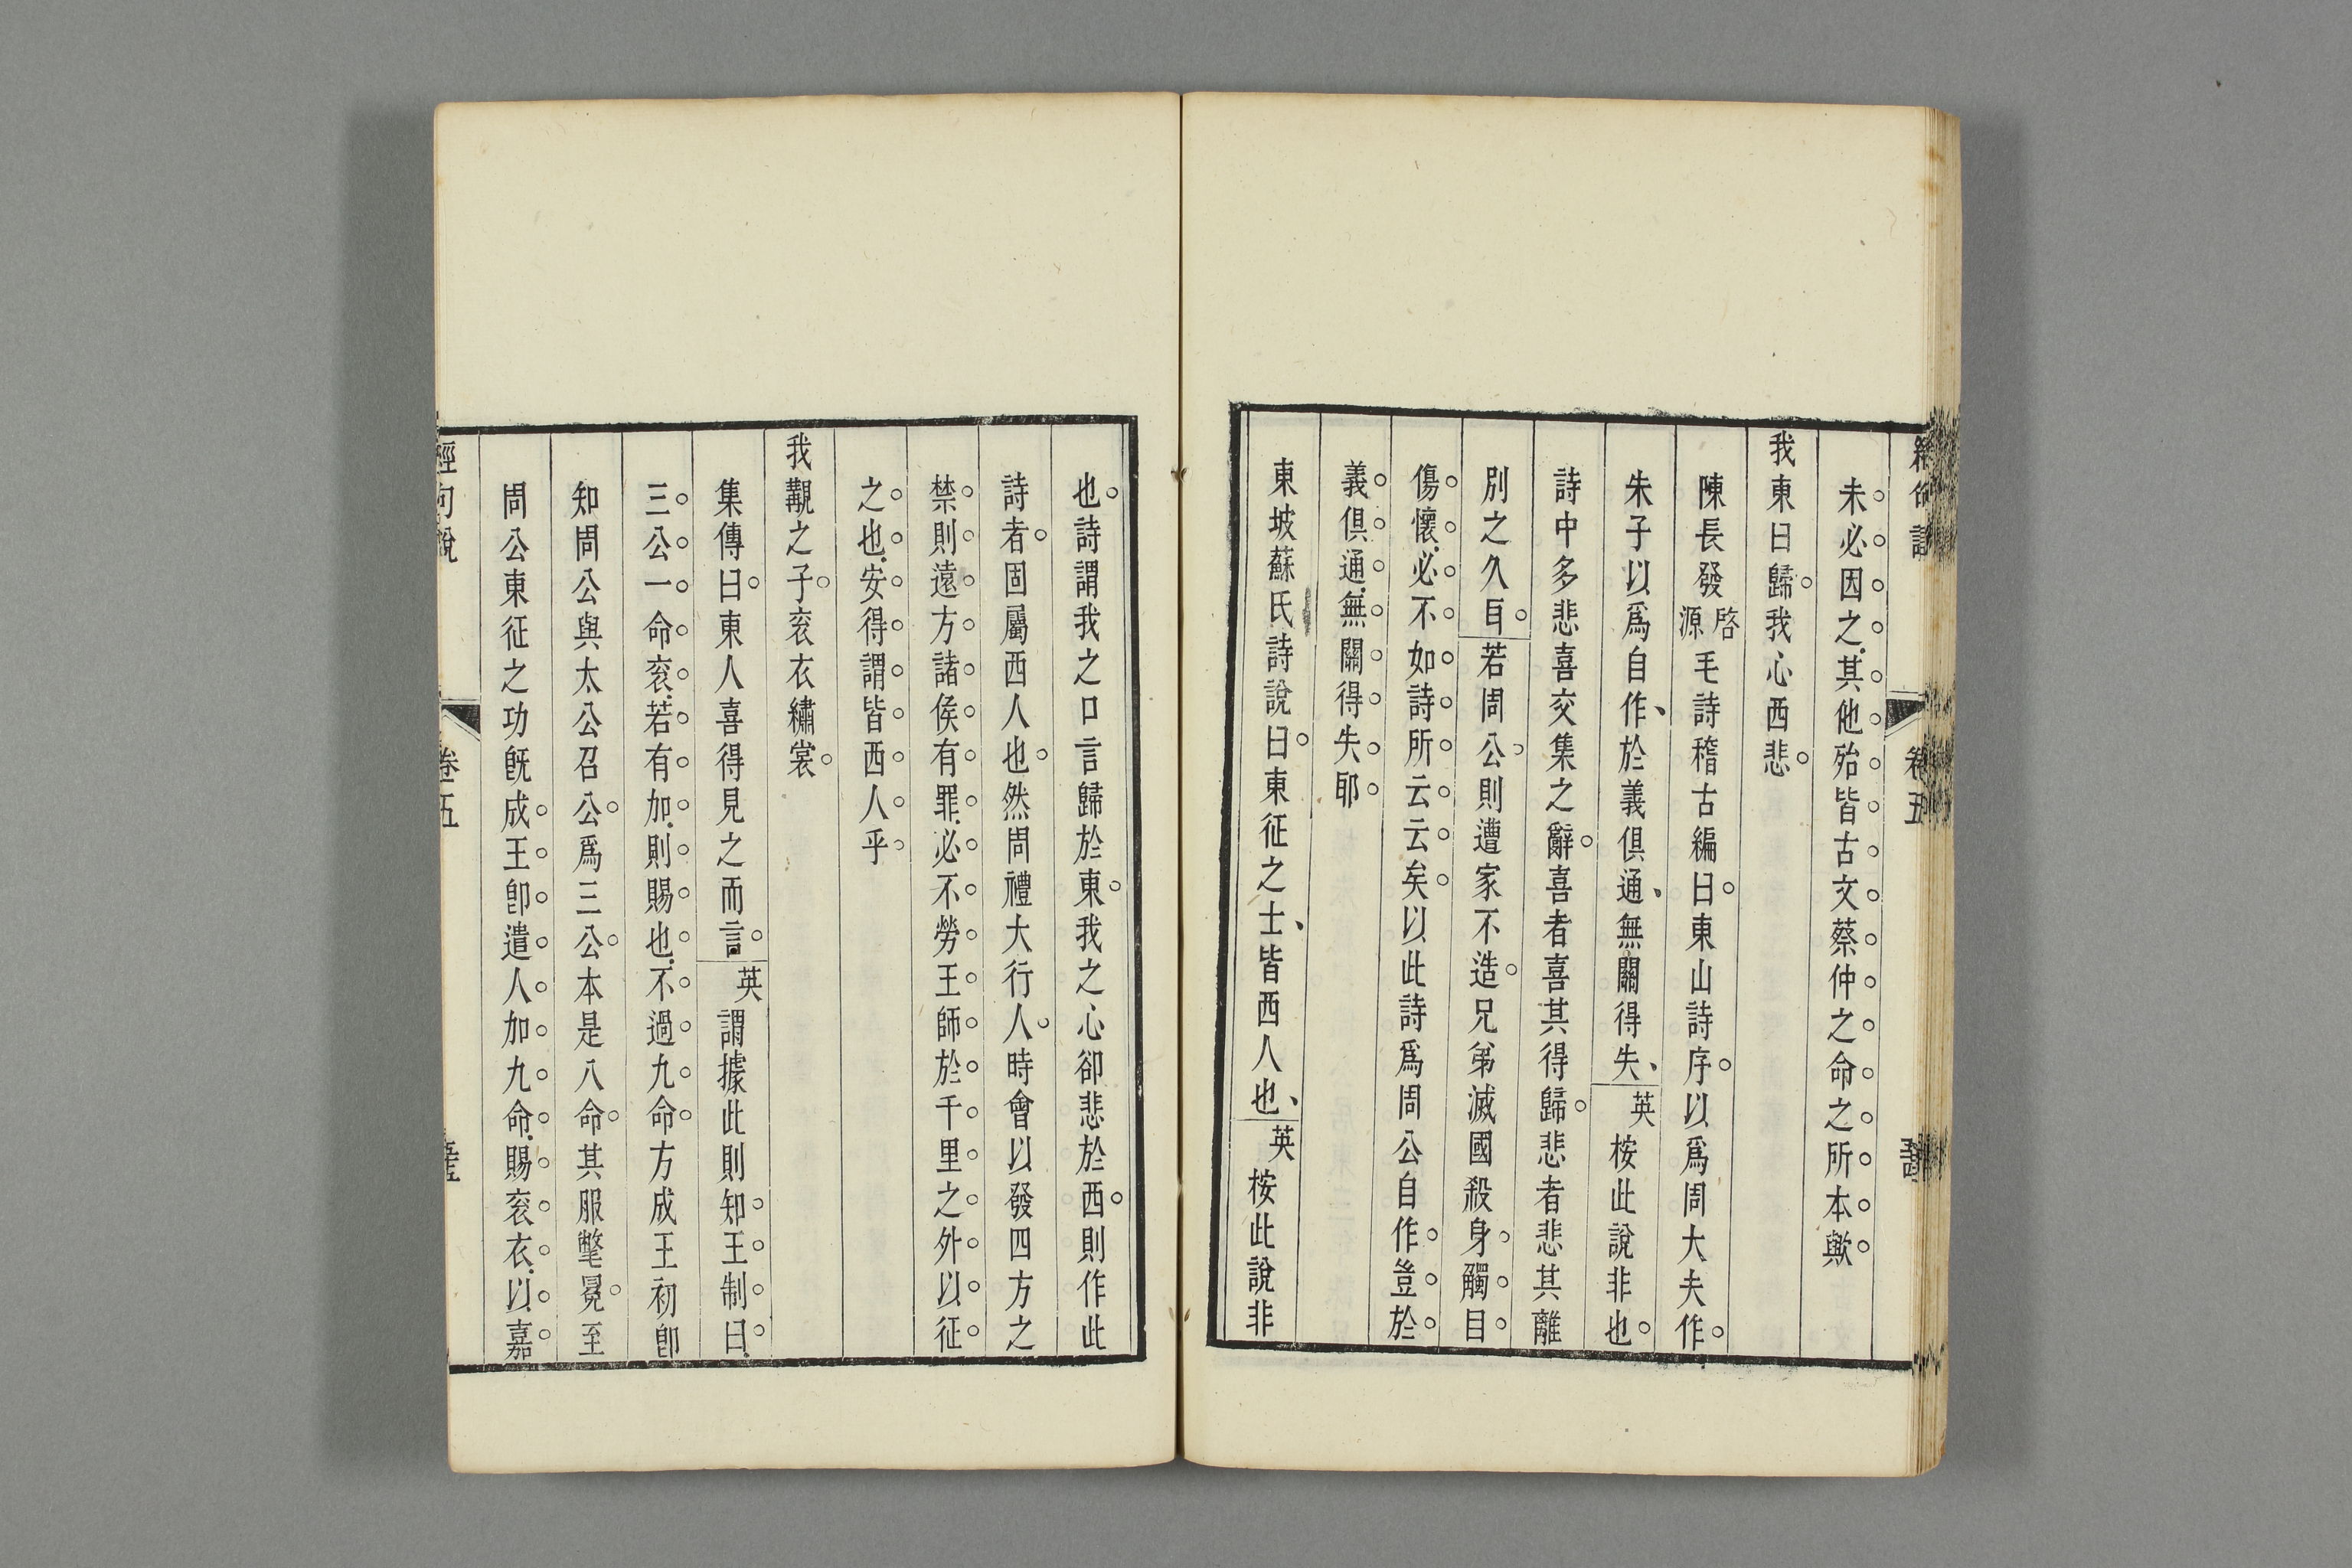 未必因之其他殆皆古文蔡仲之命之所本歟
我東曰歸我心西悲
陳長發啓源毛詩稽古編曰東山詩序以爲周大夫作
朱子以爲自作、於義俱通、無關得失、英桉此說非也
詩中多悲喜交集之辭喜者喜其得歸悲者悲其離
別之久㠯若周公則遭家不造兄弟滅國殺身觸目
傷懷必不如詩所云云矣以此詩爲周公自作豈於
義俱通無關得失耶
東坡蘇氏詩說曰東征之士、皆西人也、英桉此說非
也詩謂我之口言歸於東我之心卻悲於西則作此
詩者固屬西人也然周禮大行人時會以發四方之
禁則遠方諸侯有罪必不勞王師於千里之外以征
之也安得謂皆西人乎
我覯之子衮衣繡裳
集傳曰東人喜得見之而言英謂據此則知王制曰
三公一命衮若有加則賜也不過九命方成王初卽
知周公與太公召公爲三公本是八命其服鷩冕至
周公東征之功旣成王卽遣人加九命賜衮衣以嘉
經句說 卷五